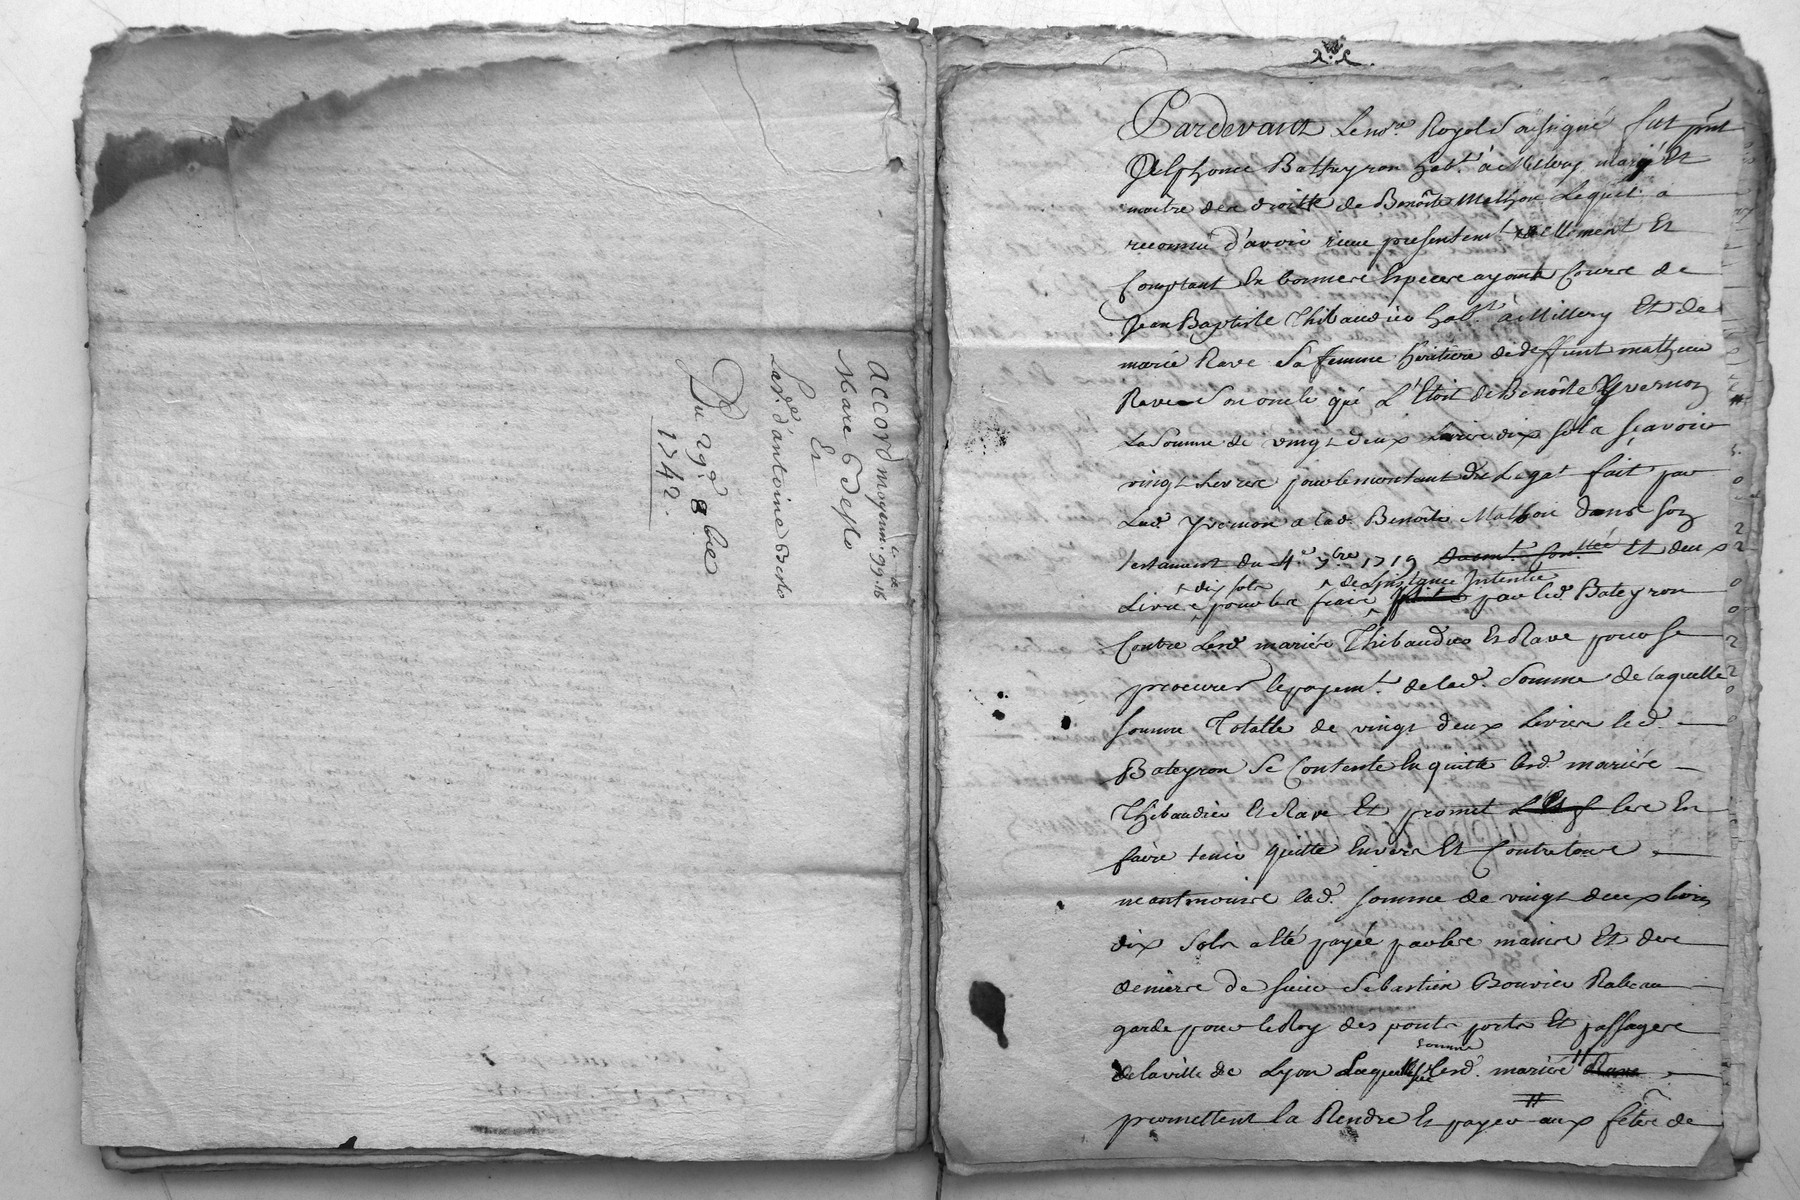 accord moyenn. 99. 16
Marc Besso
Et
La v.e d'antoine Besso
Du 29.e 8bre
1742.
Pardevant Le no.re Royal Soussigné fut pnt
Delphonce Batheyron hab.t à Millery mary Et
maitre des droitte de Benôite Mathon Lequel a
reconnu d'avoir receu presentemt reellement Et
Comptant En bonnere Especere ayante Cource de
Jean Baptiste Thibaudier hab.t à Millery Et de
marie Rave Sa femme heritiere de deffunt mathieu
Rave Son oncle qui L'Etoit de Benôite Yvernon
La Somme de vingt deux Livre dix sols sçavoir
vingt Livre pour le montant du Legat fait par
Lad. yvernon a lad. Benôite Mathon dans son
testament du 4.e 9bre 1719 Et deux
Livre dix sols pour les frais de L'instance Intentée par led. Bateyron
Contre Lesd mariés Thibaudier Et Rave pour se
procurer le payemt. de lad. Somme de laquelle
somme Totalle de vingt deux Livres led.
Bateyron Se Contente En quitte lesd. mariés
Thibaudier Et Rave Et promet lere En
faire tenir quitte Envers Et Contre toure
neantmoins lad. somme de vingt deux livres
dix Sols a Eté payée par lere mainre Et dere
denierre de sieur Sebastien Bouvier Rabeau
garde pour le Roy des ponts ports Et passagere
de la ville de Lyon Laquelle somme que lesd. mariés
promettent la Rendre Et payer aux fête de